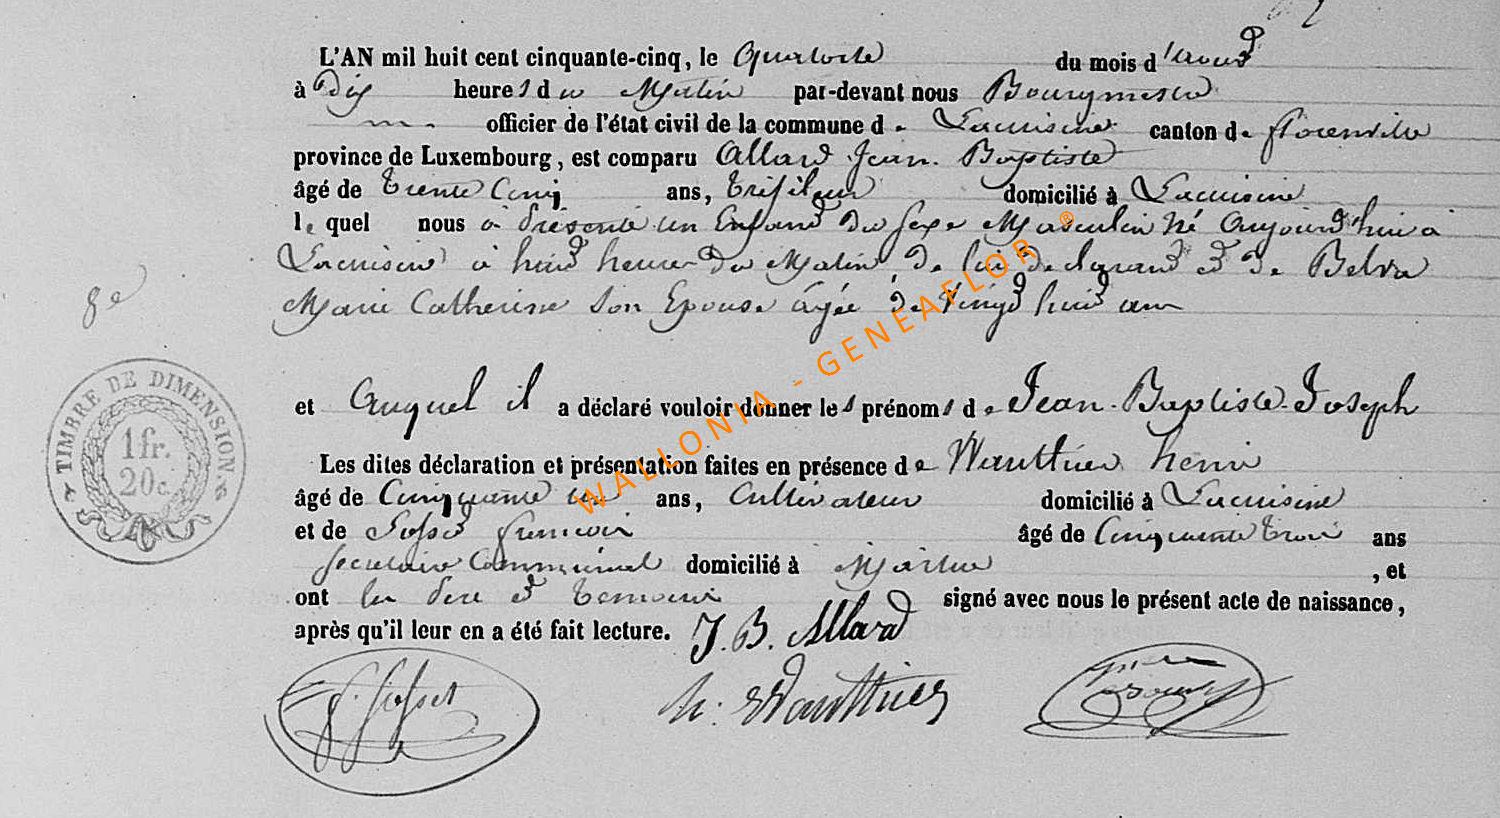 L'AN mil huit cent cinquante-cinq, le Quatorze du mois d'août
à Dix heures du Matin par-devant nous Bourgmestre
officier de l'état civil de la commune de Lacuisine canton de florenville
province de Luxembourg, est comparu Allard Jean Baptiste
âgé de trente Cinq ans, trefileur domicilié à Lacuisine
lequel nous a présenté un Enfant du sexe Masculin Né Aujourd'hui à
Lacuisine à huit heures du Matin, de lui déclarant et de Belva
8e
Marie Catherine son Epouse âgée de Vingt huit ans
TIMBRE DE DIMENSION
1 fr.
20 c.
et Auquel il a déclaré vouloir donner les prénoms de Jean-Baptiste-Joseph
Les dites déclaration et présentation faites en présence de Wauthier henri
âgé de Cinquante un ans, Cultivateur domicilié à Lacuisine
et de Gosset françois âgé de Cinquante trois ans
secrétaire Communal domicilié à Martue, et
ont les Père et temoins signé avec nous le présent acte de naissance,
après qu'il leur en a été fait lecture. J. B. Allard
f. Gosset h. Wauthier
WALLONIA - GENEAFLOR ®